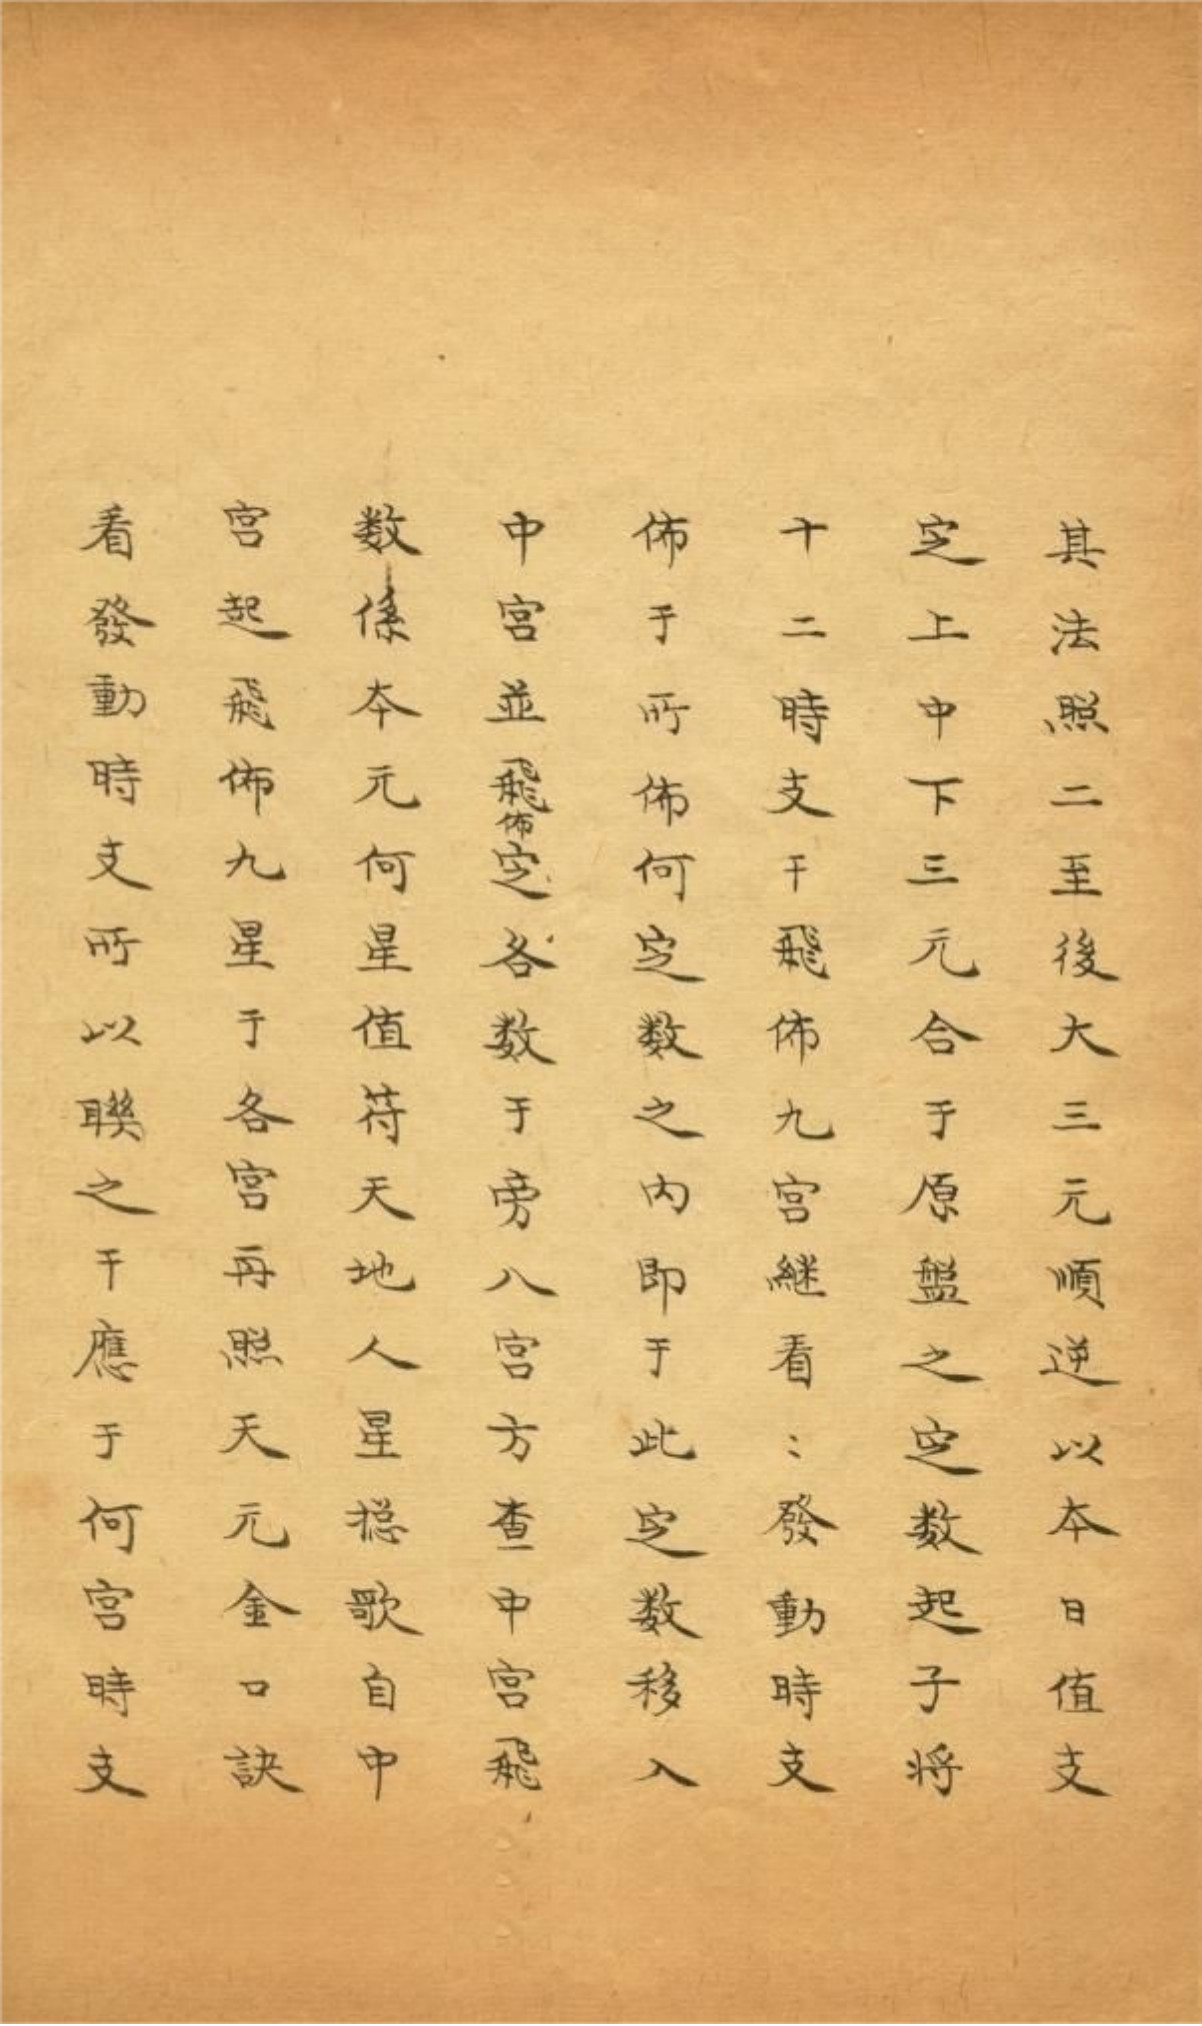 其法照二至後大三元順逆以本日值支
定上中下三元合于原盤之定数起子将
十二時支干飛佈九宮継看〻發動時支
佈于所佈何定数之内即于此定数移入
中宮並飛佈定各数于旁八宮方查中宮飛
数係本元何星值符天地人星捴歌自中
宮起飛佈九星于各宮再照天元金口訣
看發動時支所以聮之干應于何宮時支